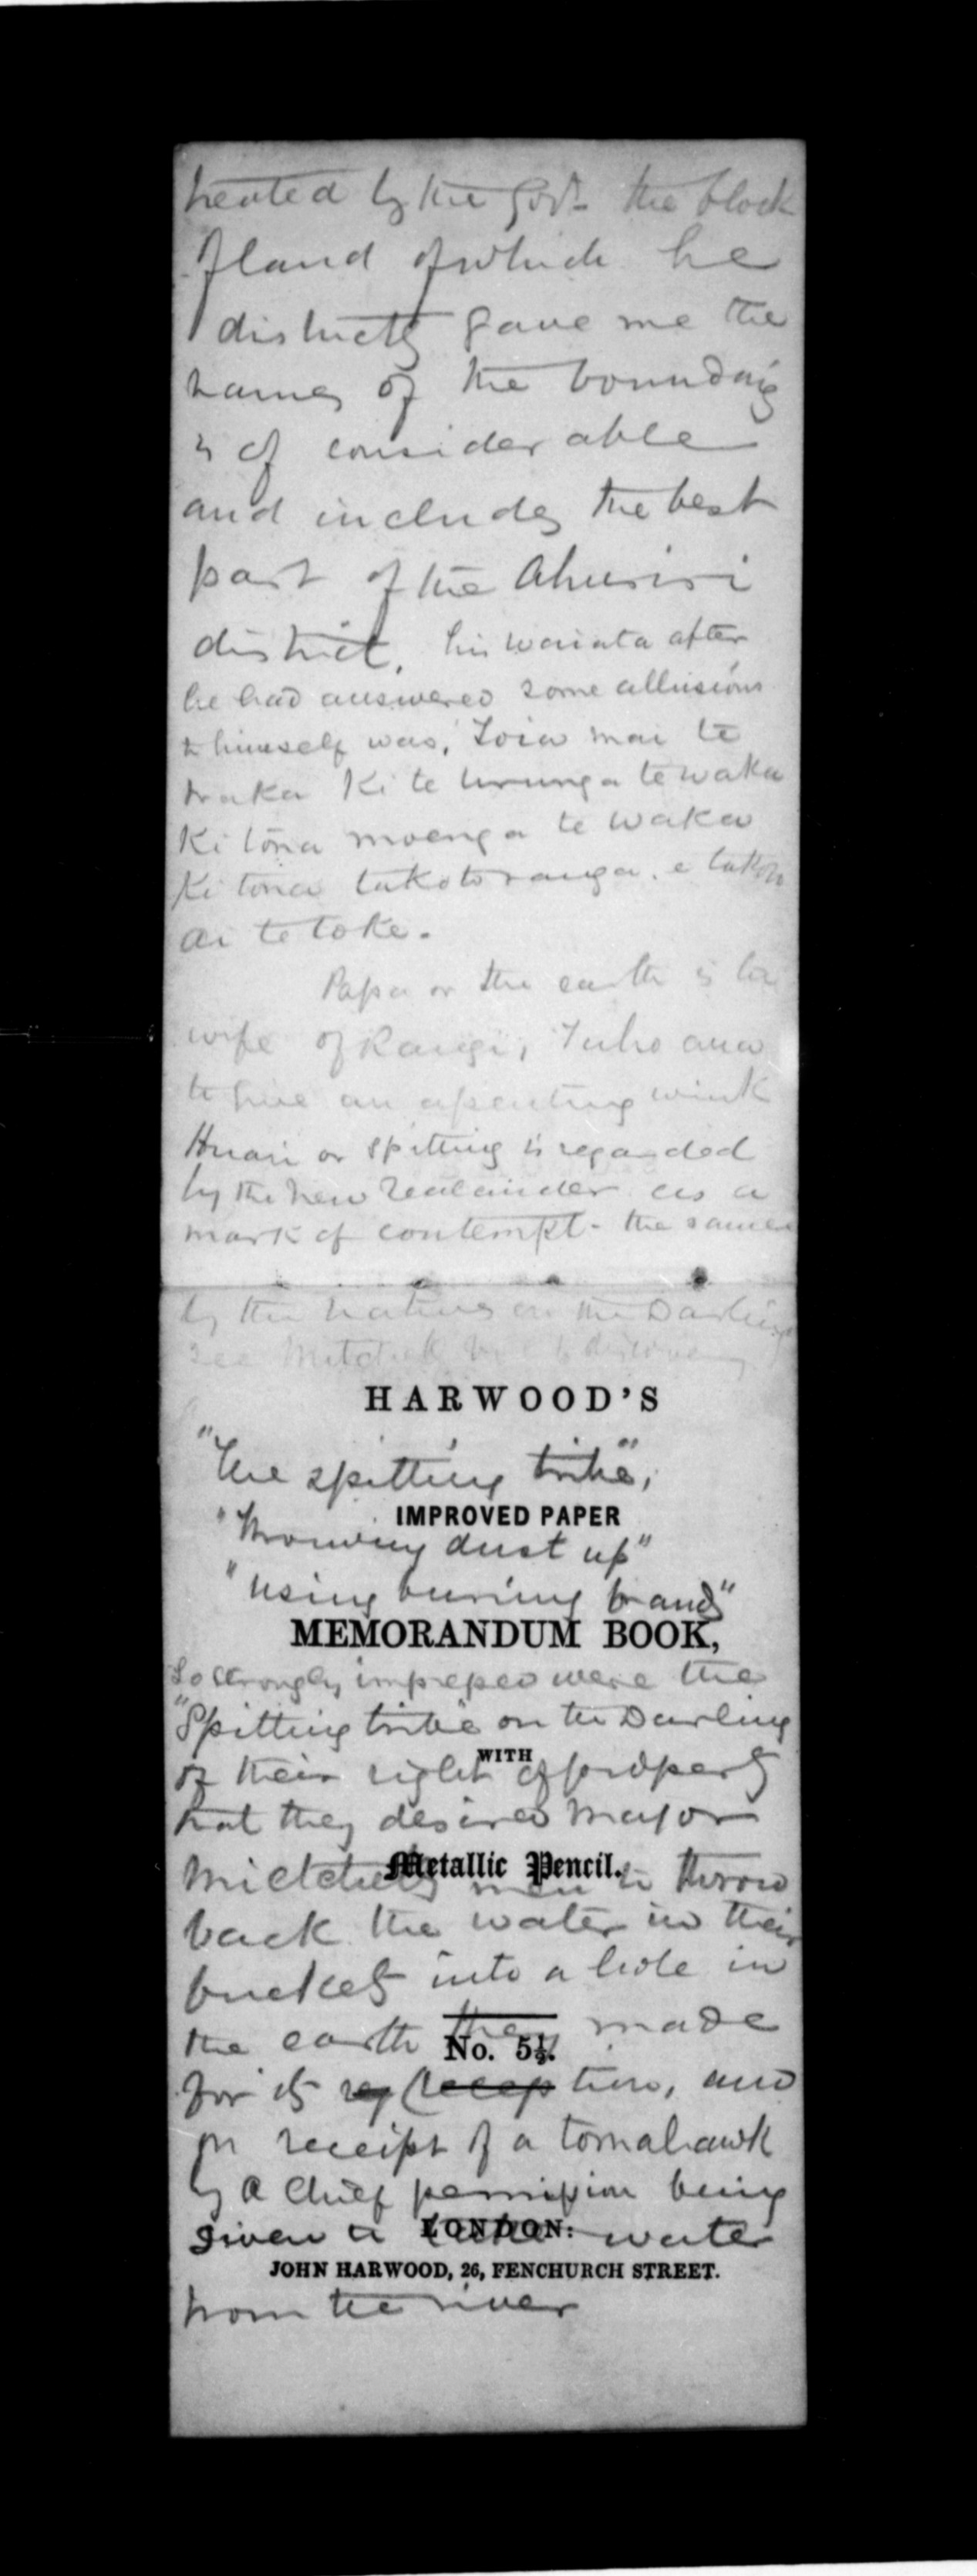 treated by the Govt. the block
of land of which he
districts gave me the
names of the boundary
is of considerable
and includes the best
part of the Ahuriri
district, his waiata after
he had answered some allusions
to himself was, Toia mai te
waka Ki te urunga te waka
Ki tona moenga te waka
Ki tona takotoranga. e takoto
ai te toke.
Papa or the earth is the
wife of Rangi,
to give an wink
or spitting is regarded
by the new Zealander as a
mark of contempt - the same
by the natives on the Darling
see Mitchell
HARWOOD'S
"The spitting tribe",
IMPROVED PAPER
"Throwing dust up"
"using burning brands"
MEMORANDUM BOOK,
So strongly impressed were the
"Spitting tribe" on the Darling
WITH
of their right of property
that they desired Major
Metallic Pencil.
Mictchell's men to throw
back the water in their
buckets into a hole in
the earth they made
No. 5½.
for its reception, and
on receipt of a tomahawk
by a Chief permission being
given to take water
LONDON:
JOHN HARWOOD, 26, FENCHURCH STREET.
from the river